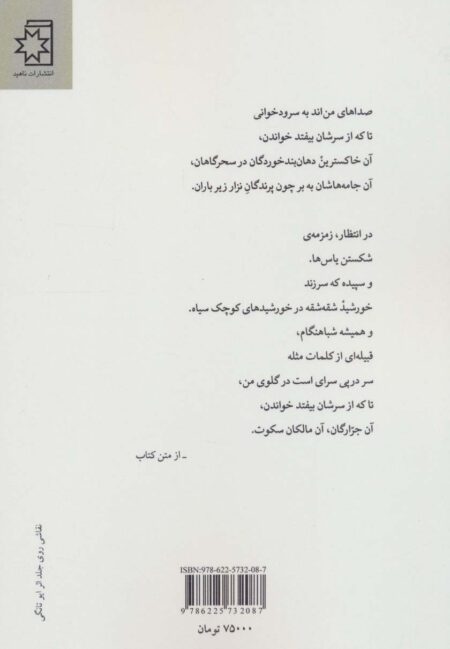 انتشارات ناهید
صداهای من‌اند به سرودخوانی
تا که از سرشان بیفتد خواندن،
آن خاکسترینْ دهان‌بندخوردگان در سحرگاهان،
آن جامه‌هاشان به بر چون پرندگانِ نزار زیر باران.
در انتظار، زمزمه‌ی
شکستن یاس‌ها.
و سپیده که سرزند
خورشیدْ شقه‌شقه در خورشیدهای کوچک سیاه.
و همیشه شباهنگام،
قبیله‌ای از کلمات مثله
سر در پی سرای است در گلوی من،
تا که از سرشان بیفتد خواندن،
آن جرّارگان، آن مالکان سکوت.
ـ از متن کتاب
نقاشی روی جلد اثر ایو تانگی
ISBN:978-622-5732-08-7
9 786225 732087
۷۵۰۰۰ تومان